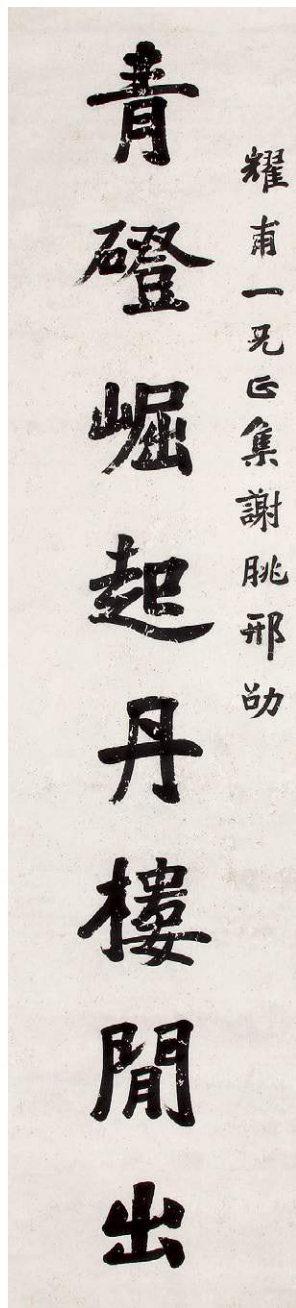 耀甫一兄正集謝朓邢劭
青磴崛起丹樓閒出